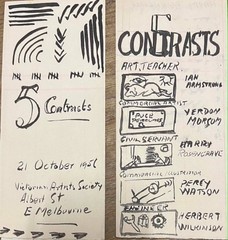 5 Contrasts
21 October 1956
Victorian Artists Society
Albert St
E Melbourne
5
CONTRASTS
ART TEACHER
IAN
ARMSTRONG
COMMERCIAL ARTIST
VERDON
MORCOM
CIVIL SERVANT
HARRY
ROSENGRAVE
COMMERCIAL ILLUSTRATOR
PERCY
WATSON
ENGINEER
HERBERT
WILKINSON